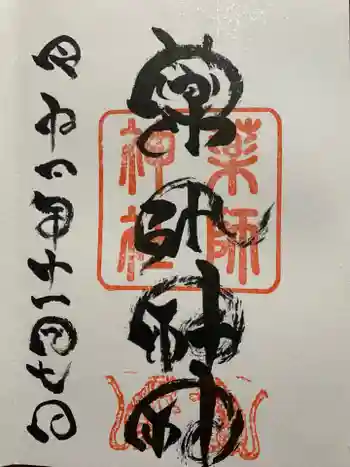 薬師神社
薬師
神社
年十一月七日